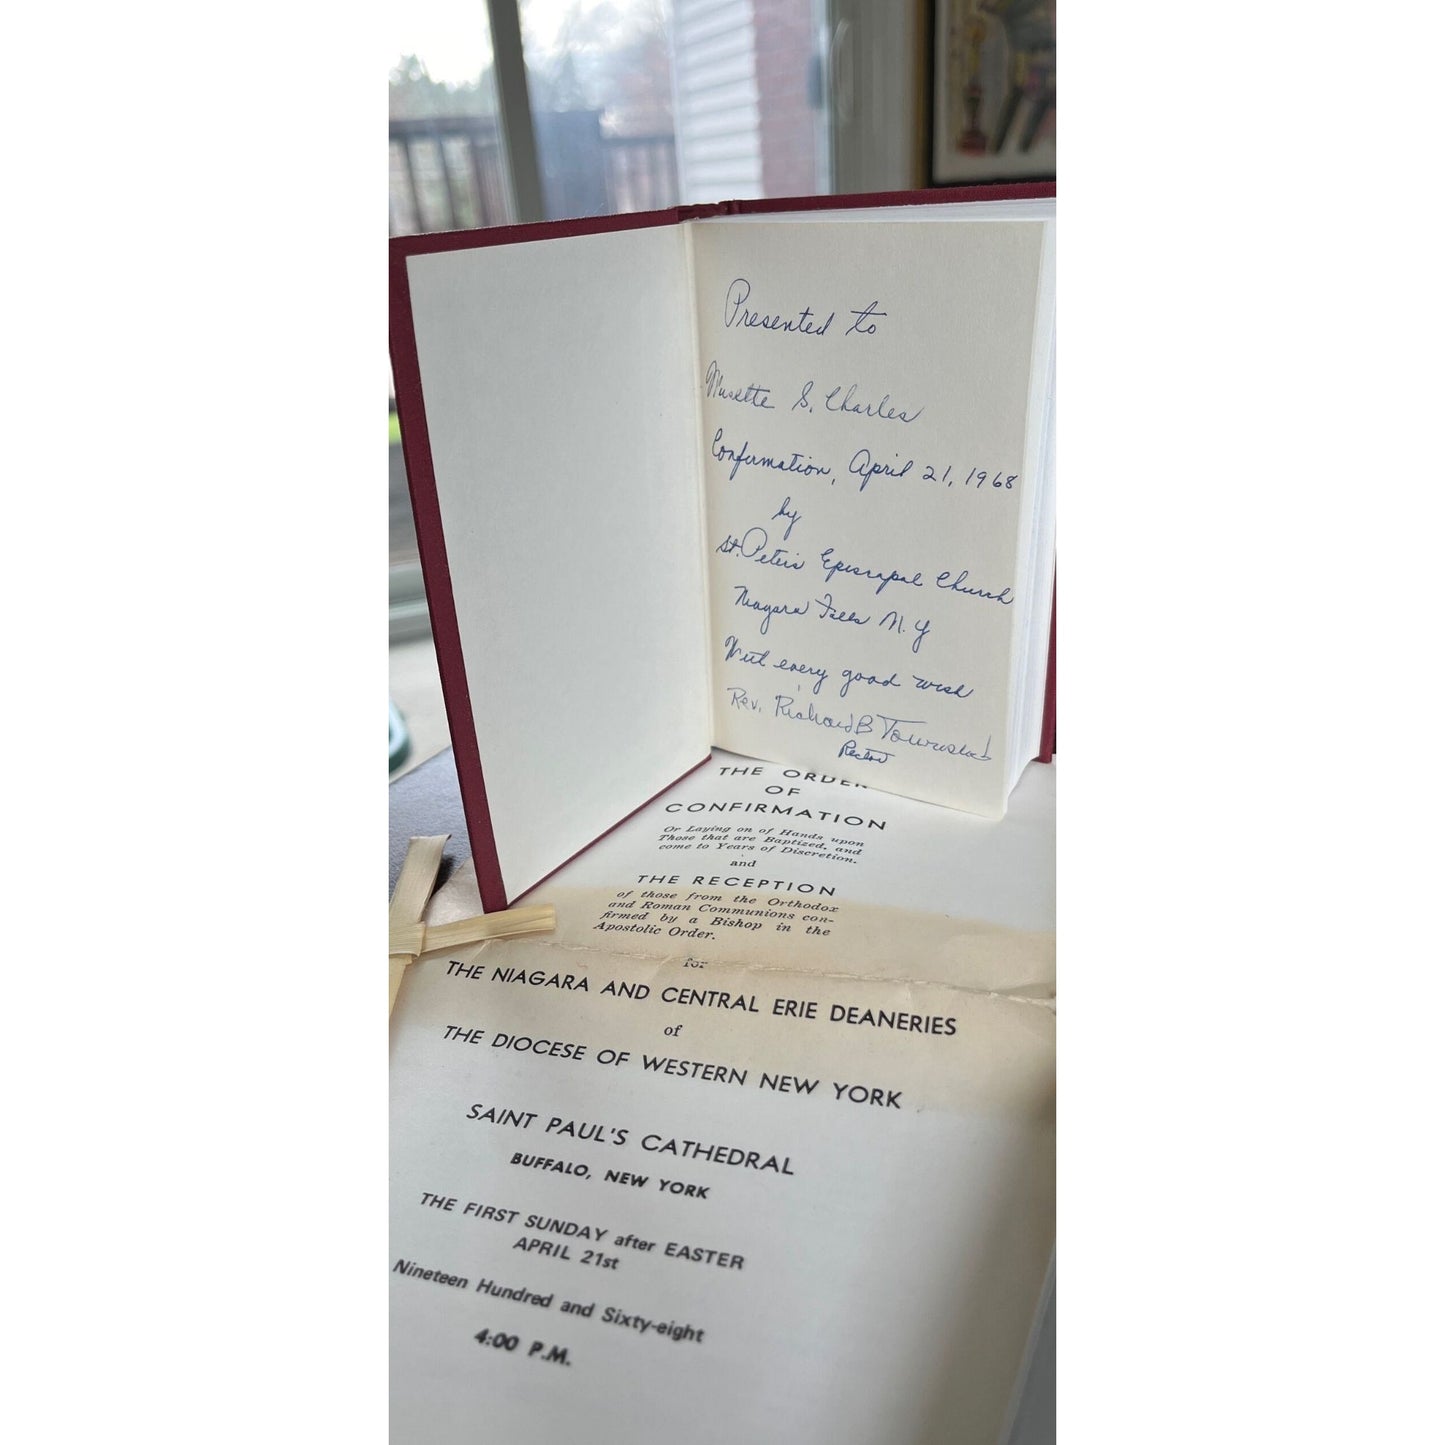 Presented to
Musette S. Charles
Confirmation, April 21, 1968
by
St. Peter's Episcopal Church
Niagara Falls N.Y
With every good wish
Rev. Richard B Townsend
Rector
THE ORDER
OF
CONFIRMATION
Or Laying on of Hands upon
Those that are Baptized, and
come to Years of Discretion.
and
THE RECEPTION
of those from the Orthodox
and Roman Communions con-
firmed by a Bishop in the
Apostolic Order.
for
THE NIAGARA AND CENTRAL ERIE DEANERIES
of
THE DIOCESE OF WESTERN NEW YORK
SAINT PAUL'S CATHEDRAL
BUFFALO, NEW YORK
THE FIRST SUNDAY after EASTER
APRIL 21st
Nineteen Hundred and Sixty-eight
4:00 P.M.